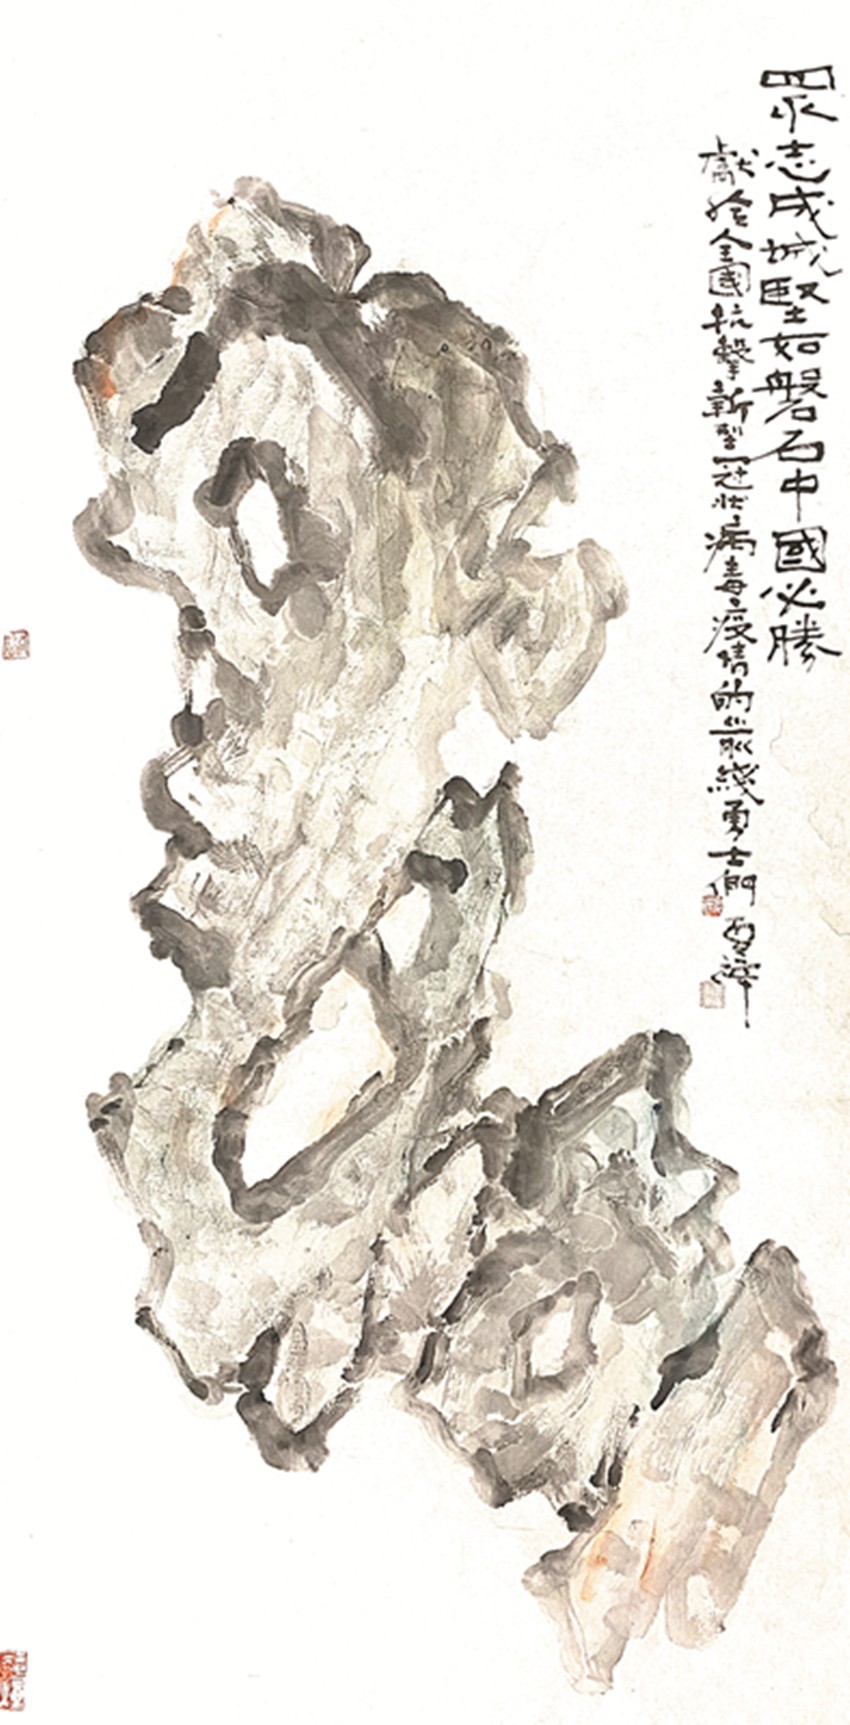 眾志成城堅如磐石中國必勝
獻給全國抗擊新型冠狀病毒疫情的前綫勇士們